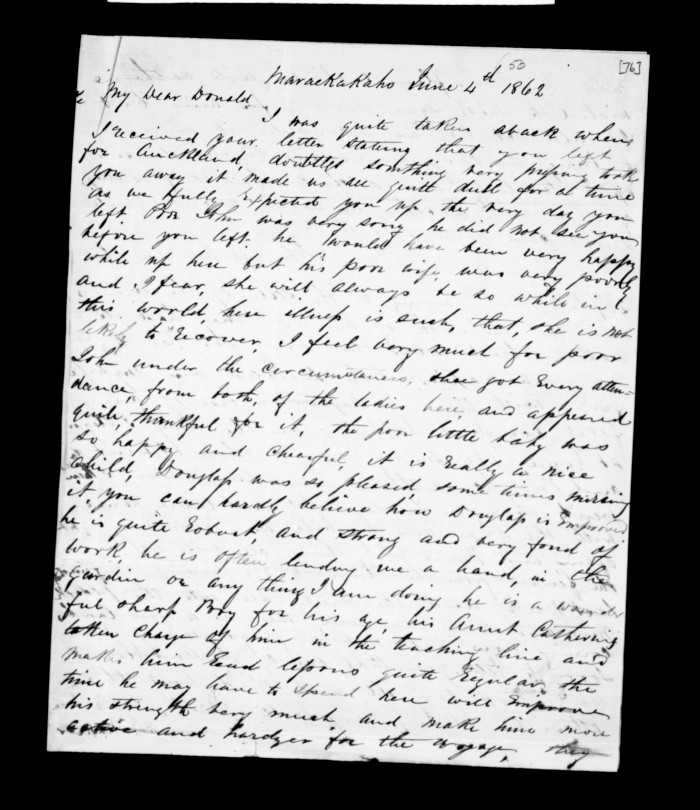 50
[76]
Maraekakaho June 4th 1862
My Dear Donald
I was quite taken aback when
I received your letter stating that you left
for Auckland, doubtless something very pressing took
you away it made us all quite dull for a time
as we fully expected you up the very day you
left Poor John was very sorry he did not see you
before you left. he would have been very happy
while up here but his poor wife was very poorly
and I fear, she will always be so while in
this world, here illness is such, that, she is not
likely to recover, I feel very much for poor
John under the circumstances, she got Every atten-
dance, from both, of the ladies here, and appeared
quite, thankful for it, the poor little baby was
so happy and chearful, it is really a nice
Child, Douglass was so pleased some times nursing
it, you can hardly believe how Douglass is improved
he is quite Robust, and strong and very fond of
work, he is often lending me a hand, in the
gardin or any thing I am doing he is a wonder
ful sharp Boy for his age, his Aunt Catherine
taken Charge of him in the teaching line and
makes him Read lessons quite Regular, the
time he may have to spend here will improve
his strength very much, and make him more
active and hardyer for the voyage, they